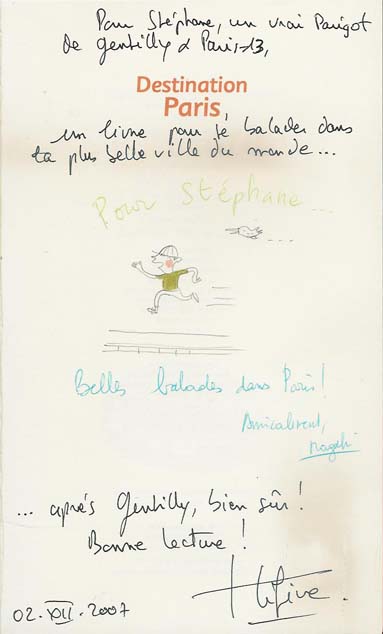 Pour Stéphane, un vrai Parigot
de Gentilly & Paris-13,
Destination
Paris,
un livre pour te balader dans
la plus belle ville du monde...
Pour Stéphane...
Belles balades dans Paris!
Amicalement,
Magali
... après Gentilly, bien sûr !
Bonne lecture !
02.XII.2007